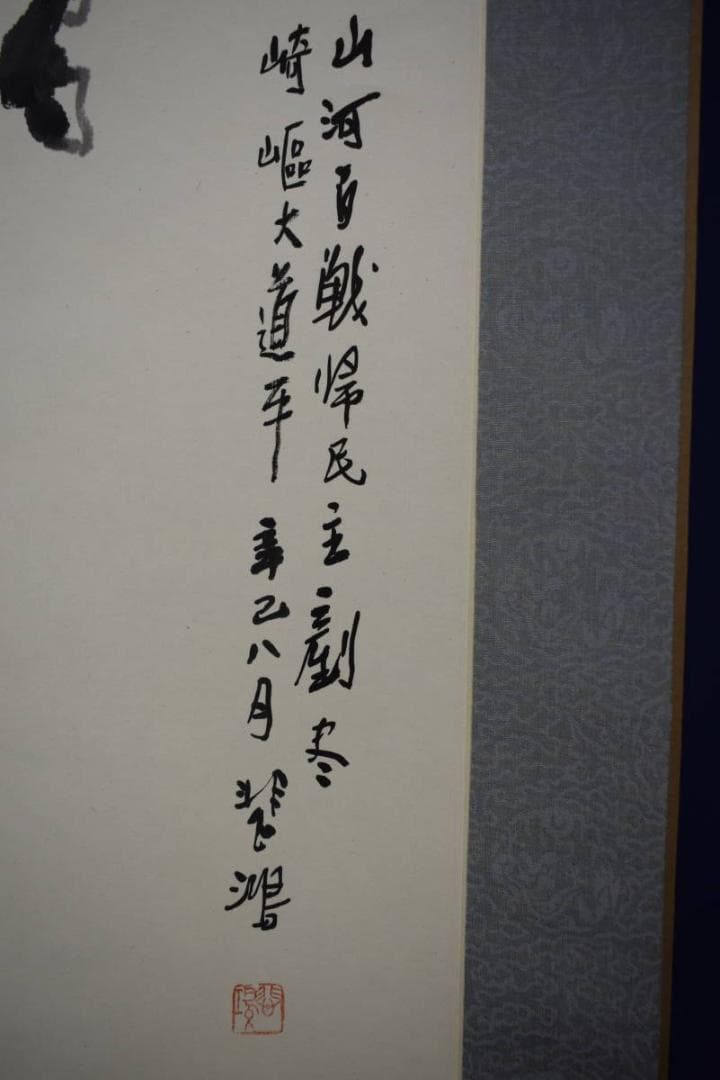 山河百戰帰民主剷尽
崎嶇大道平 辛巳八月 悲鴻